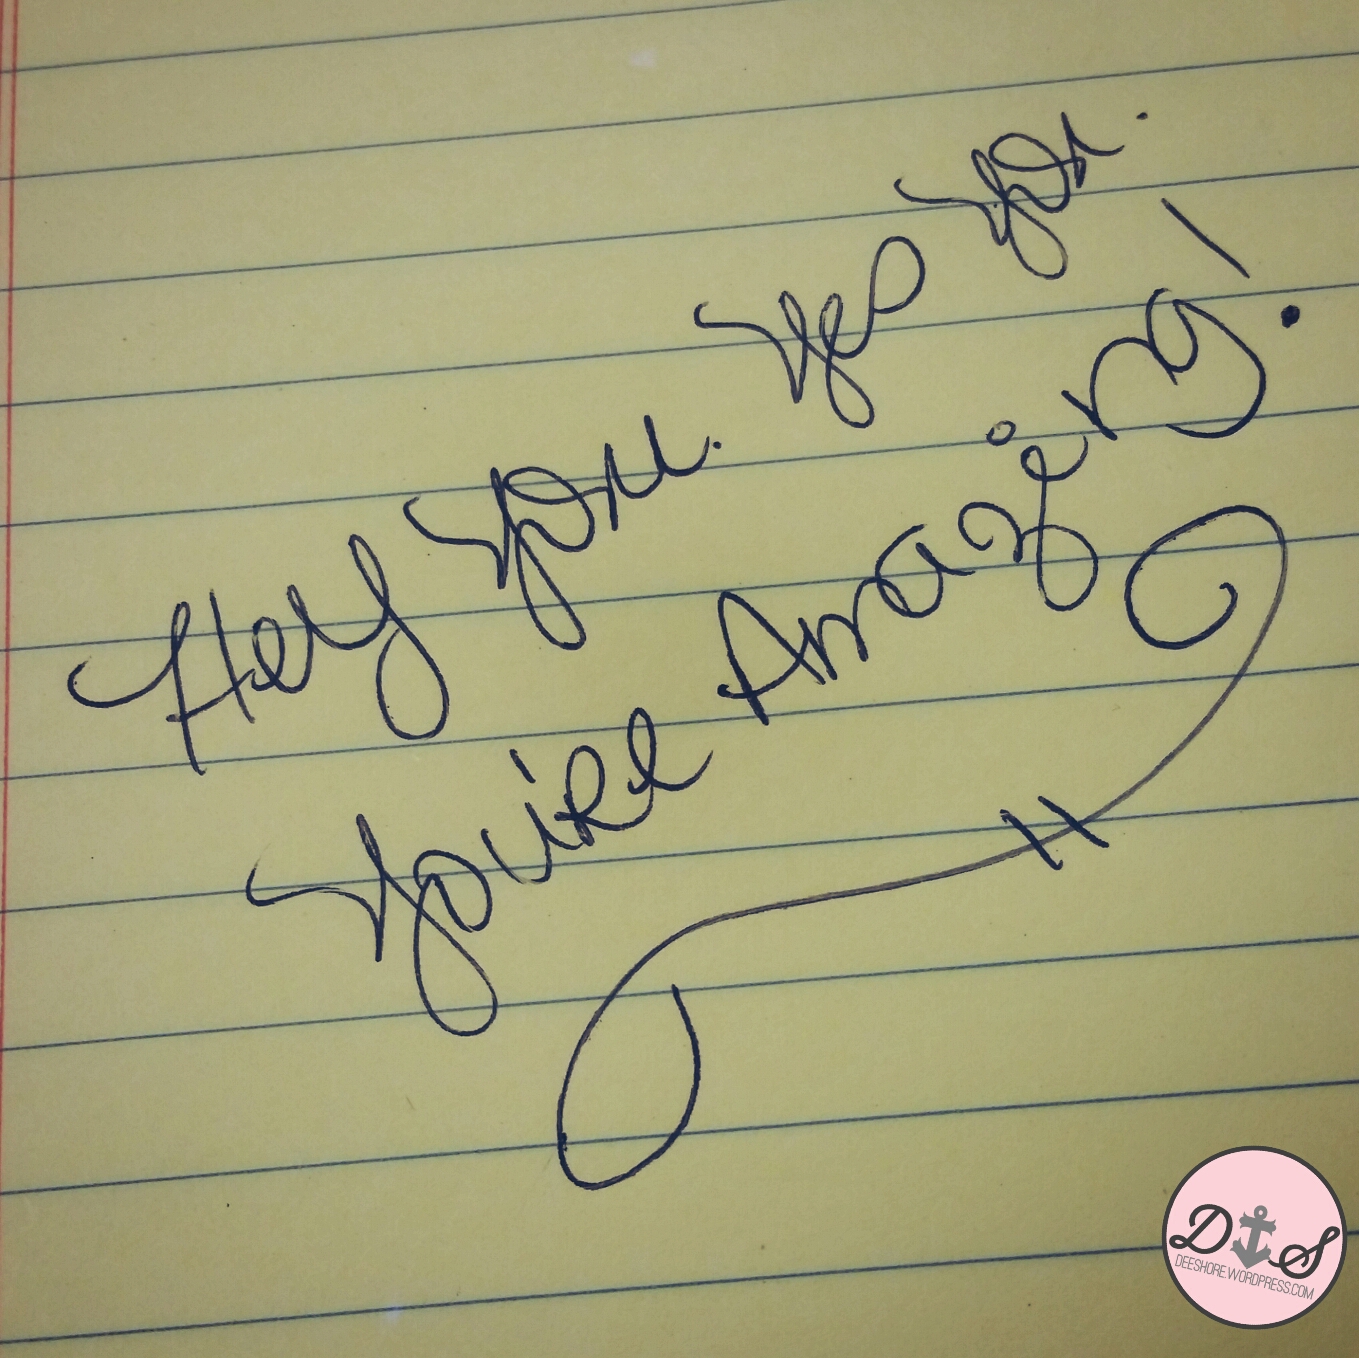 Hey you. Yes you.
You're Amazing!
D S
DEESHORE.WORDPRESS.COM